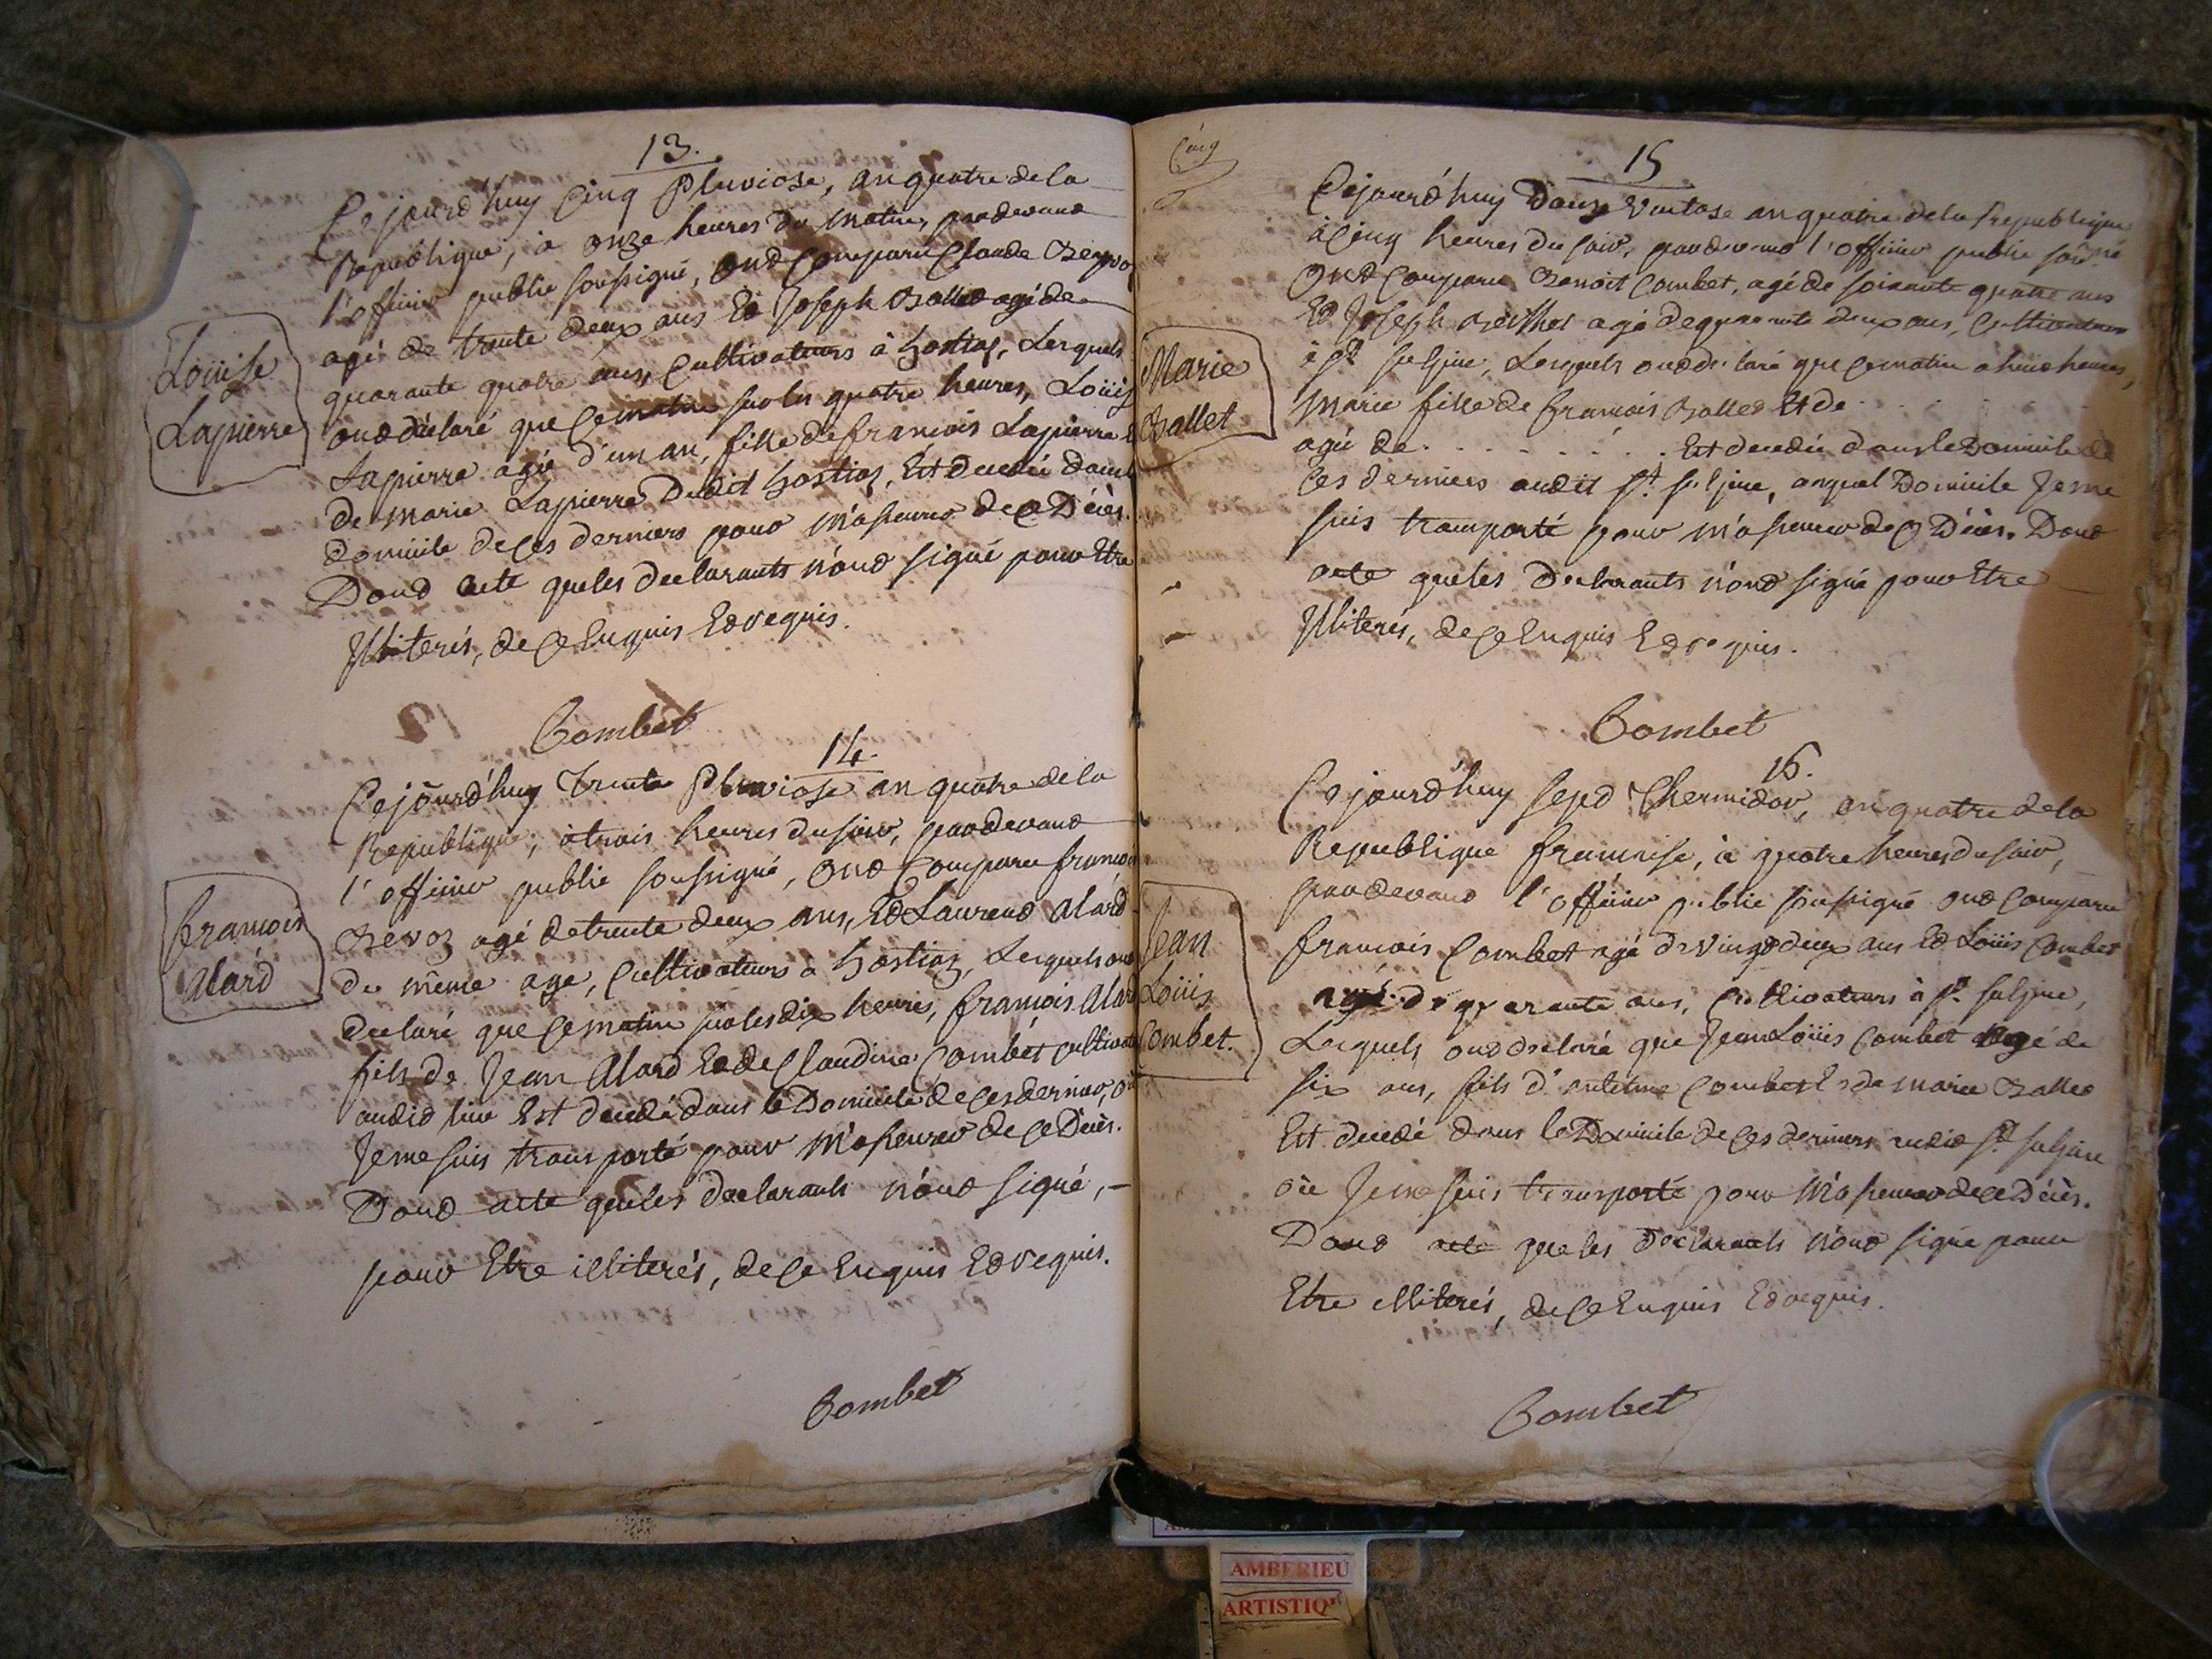 13.
Cejourd'huy Cinq Pluviose, an quatre de la
Republique, à onze heures du matin, pardevant
l'officier public soussigné, ont comparu Claude
agé de trente deux ans Et Joseph Ballet agé de
quarante quatre ans, Cultivateurs à hostiaz, Lesquels
ont déclaré que ce matin sur les quatre heures, Loüise
Lapierre agée d'un an, fille de françois Lapierre
de marie Lapierre Dudit hostiaz, Est decedée dans
domicile de ces derniers pour m'assurer de ce Décès.
Dont acte que les declarants n'ont signé pour Etre
Illiterés, de ce Enquis Et requis.
Combet
Loüise
Lapierre
14.
Cejourd'huy trente Pluviose an quatre de la
Republique, à trois heures du soir, pardevant
l'officier public soussigné, ont comparu françois
Bevoz agé de trente deux ans, Et Laurent Alard
du même age, Cultivateurs à hostiaz, Lesquels ont
declaré que ce matin sur les dix heures, françois Alard
fils de Jean Alard Et de Claudine Combet
audit lieu Est decedé dans le Domicile de ces derniers, où
Je me suis transporté pour m'assurer de ce Décès.
Dont acte que les declarants n'ont signé,
pour Etre illiterés, de ce Enquis Et requis.
Combet
françois
Alard
Cinq
15
Cejourd'huy Douze Ventose an quatre de la Republique
à Cinq heures du soir, pardevant l'officier public
ont comparu Benoit Combet, agé de soixante quatre ans
Et Joseph Berthet agé de quarante deux ans, Cultivateurs
à St. Sulpice, Lesquels ont déclaré que ce matin a heures,
Marie fille de françois Ballet Et de . . . . .
agée de . . . . . . . Est decedée dans le Domicile de
ces derniers audit St. Sulpice, auquel Domicile Je me
suis transporté pour m'assurer de ce Décès. Dont
acte que les Declarants n'ont signé pour Etre
Illiterés, de ce Enquis Et requis.
Combet
Marie
Ballet
16.
Cejourd'huy sept Thermidor, an quatre de la
Republique francaise, à quatre heures du soir,
pardevant l'officier public soussigné ont comparu
françois Combet agé de vingt deux ans Et Loüis Combet
agé de quarante ans, Cultivateurs à St. Sulpice,
Lesquels ont declaré que Jean Loüis Combet agé de
six ans, fils d'antelme Combet Et de marie Ballet
Est decedé dans le Domicile de ces derniers audit St. Sulpice
où Je me suis transporté pour m'assurer de ce Décès.
Dont acte que les Declarants n'ont signé pour
Etre illiterés, de ce Enquis Et requis.
Combet
Jean
Loüis
Combet.
AMBERIEU
ARTISTIQ'